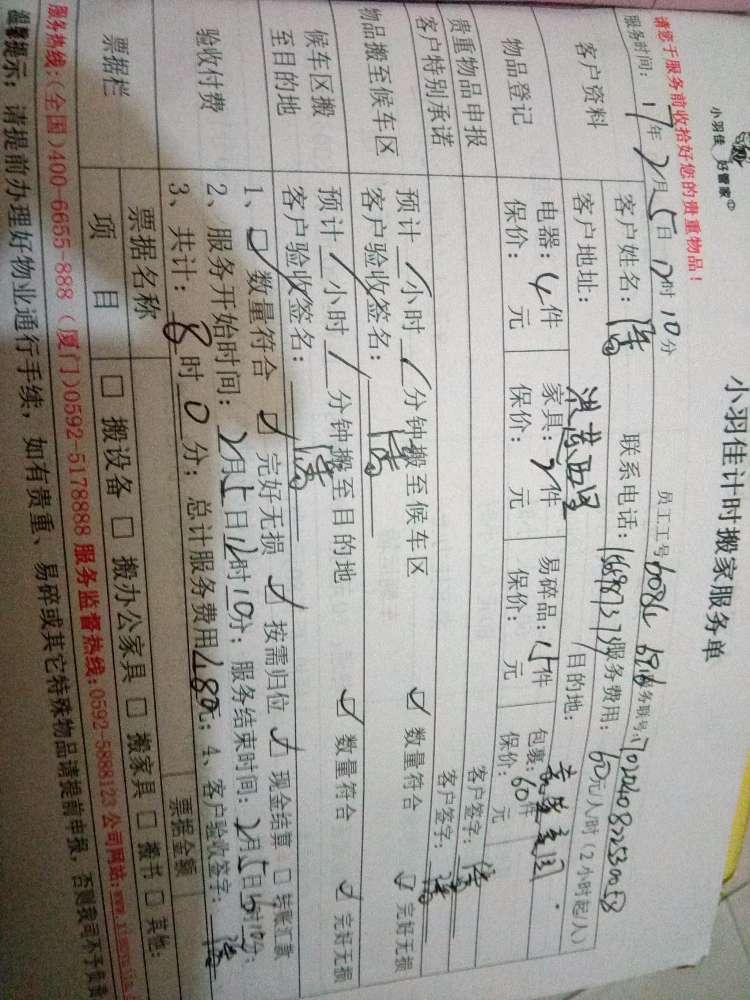 小羽佳 好管家
小羽佳计时搬家服务单
请您于服务前收拾好您的贵重物品!
员工工号 6086 6816 服务联号:
服务时间: 17年 2月 5日 12时 10分
客户资料
客户姓名: 陈 联系电话: 服务费用: 60元/人/时(2小时起/人)
客户地址: 目的地:
物品登记
电器: 4件 家具: 件 易碎品: 件 包裹: 60件
保价: 元 保价: 元 保价: 元 保价:
贵重物品申报 客户签字:
客户特别承诺 客户签字:
物品搬至候车区
预计 / 小时 / 分钟搬至候车区 ☑ 数量符合 ☑ 完好无损
客户验收签名: 陈
候车区搬至目的地
预计 / 小时 / 分钟搬至目的地 ☑ 数量符合 ☑ 完好无损
客户验收签名: 陈
验收付费
1、☑ 数量符合 ☑ 完好无损 ☑ 按需归位 ☑ 现金结算 □ 转账汇款
2、服务开始时间: 2月5日12时10分; 服务结束时间: 2月5日 时10分;
3、共计: 8时 0分; 总计服务费用 480元; 4、客户验收签字: 陈
票据栏
票据名称 票据金额
项目 □ 搬设备 □ 搬办公家具 □ 搬家具 □ 搬书 □ 其他:
服务热线:(全国)400-6655-888 (厦门)0592-5178888 服务监督热线:0592-5888123 公司网站:
温馨提示: 请提前办理好物业通行手续, 如有贵重、易碎或其它特殊物品请提前申报, 否则我司不予负责